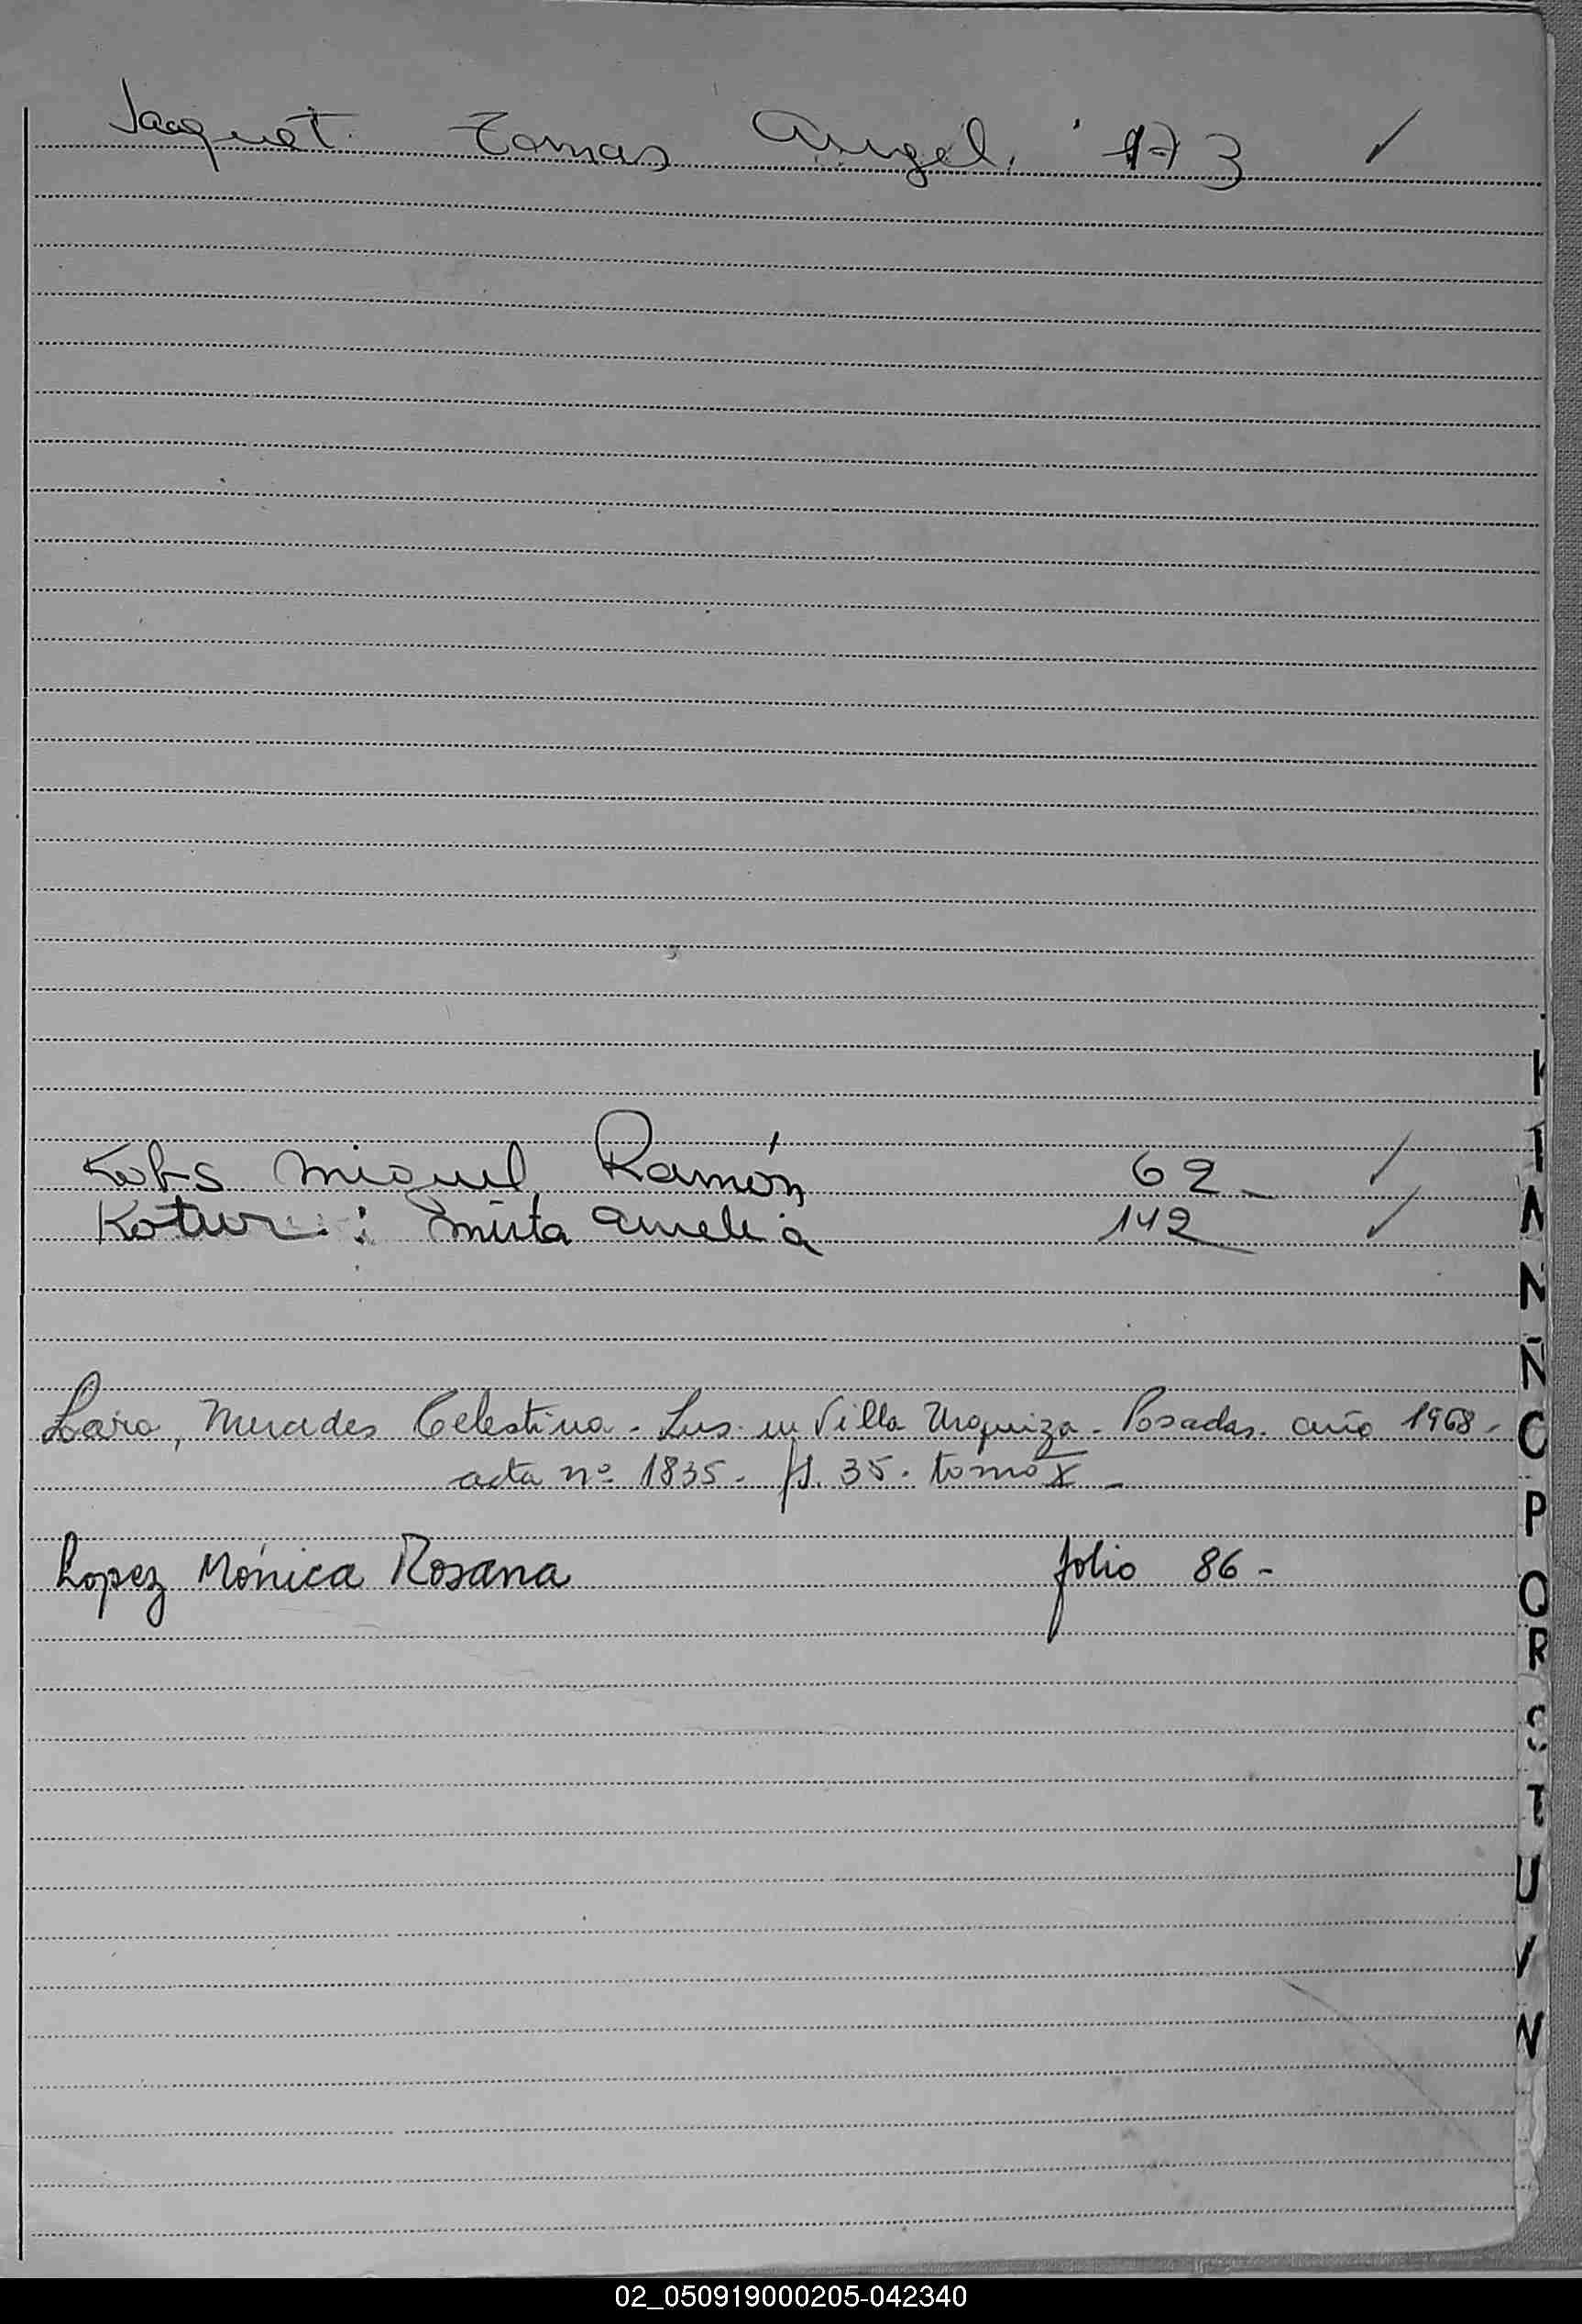 Jacquet Tomas Angel. 173 ✓
Kobs Miguel Ramón 62 - ✓
Kotur : Mirta Amelia 142 ✓
Lara, Mercedes Celestina - Ins. en Villa Urquiza - Posadas. año 1968 -
acta nº 1835 - fl. 35. tomo X -
Lopez Mónica Rosana folio 86 -
K
L
M
N
Ñ
O
P
Q
R
S
T
U
V
W
02_050919000205-042340